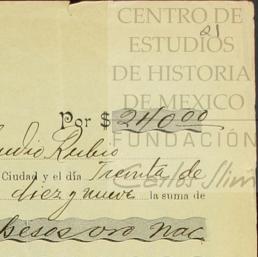 CENTRO DE
ESTUDIOS
DE HISTORIA
DE MEXICO
21
Por $ 240.00
FUNDACIÓN
Rubio
Carlos Slim
Ciudad y el día Treinta de
diez y nueve la suma de
pesos oro nac